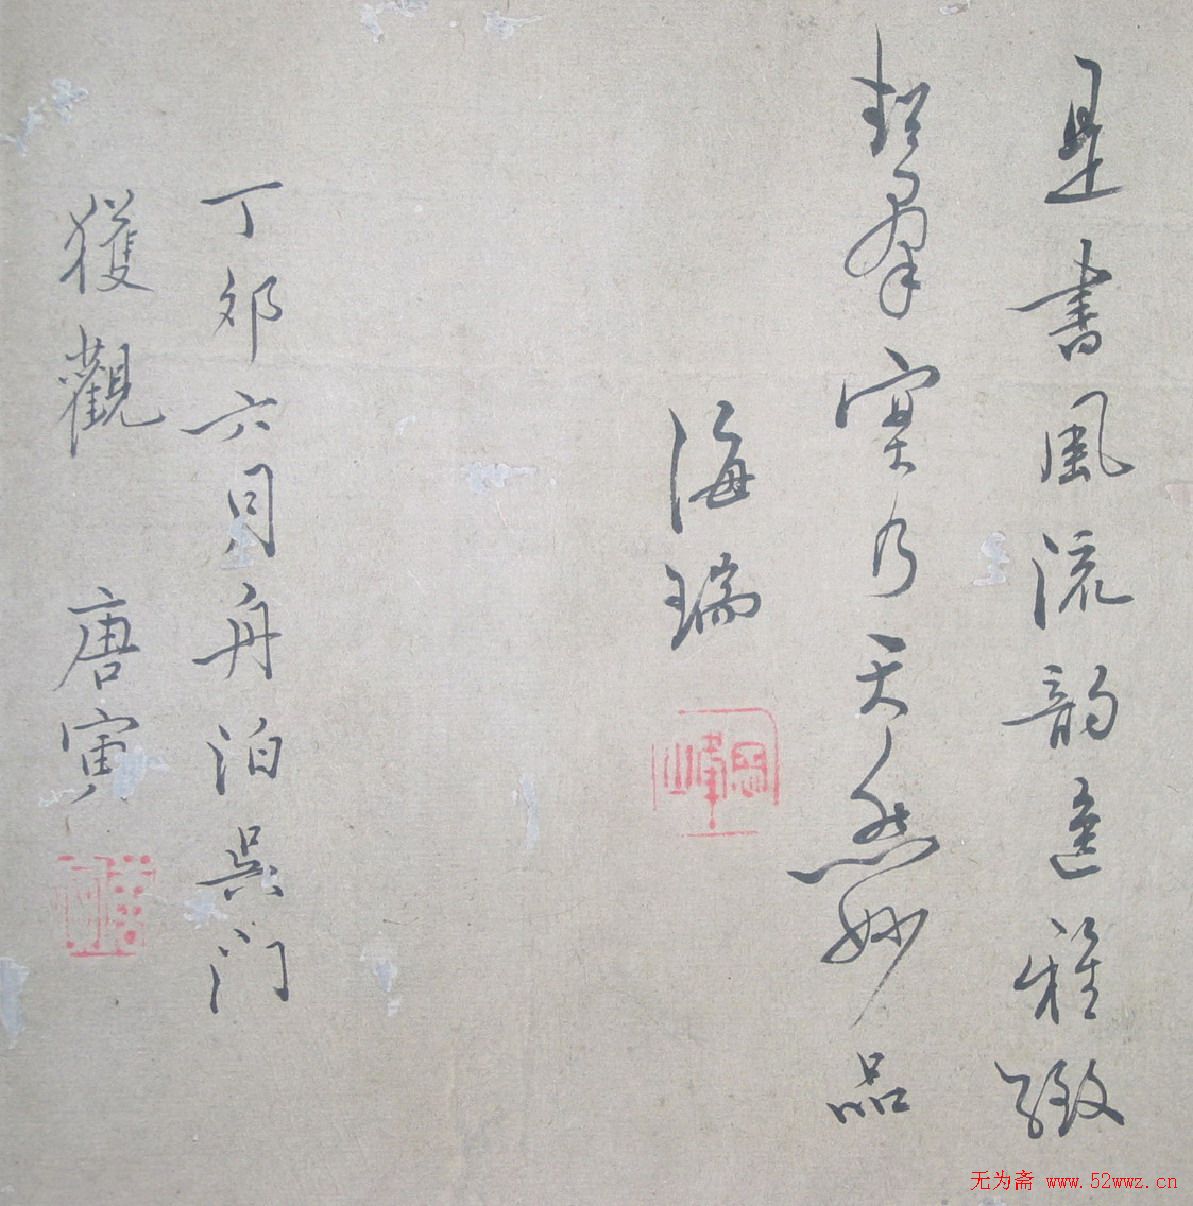 是書風流韵遠雅緻
超羣實乃天然妙品
海瑞
丁卯六月舟泊吳門
獲觀 唐寅
无为斋 www.52wwz.cn